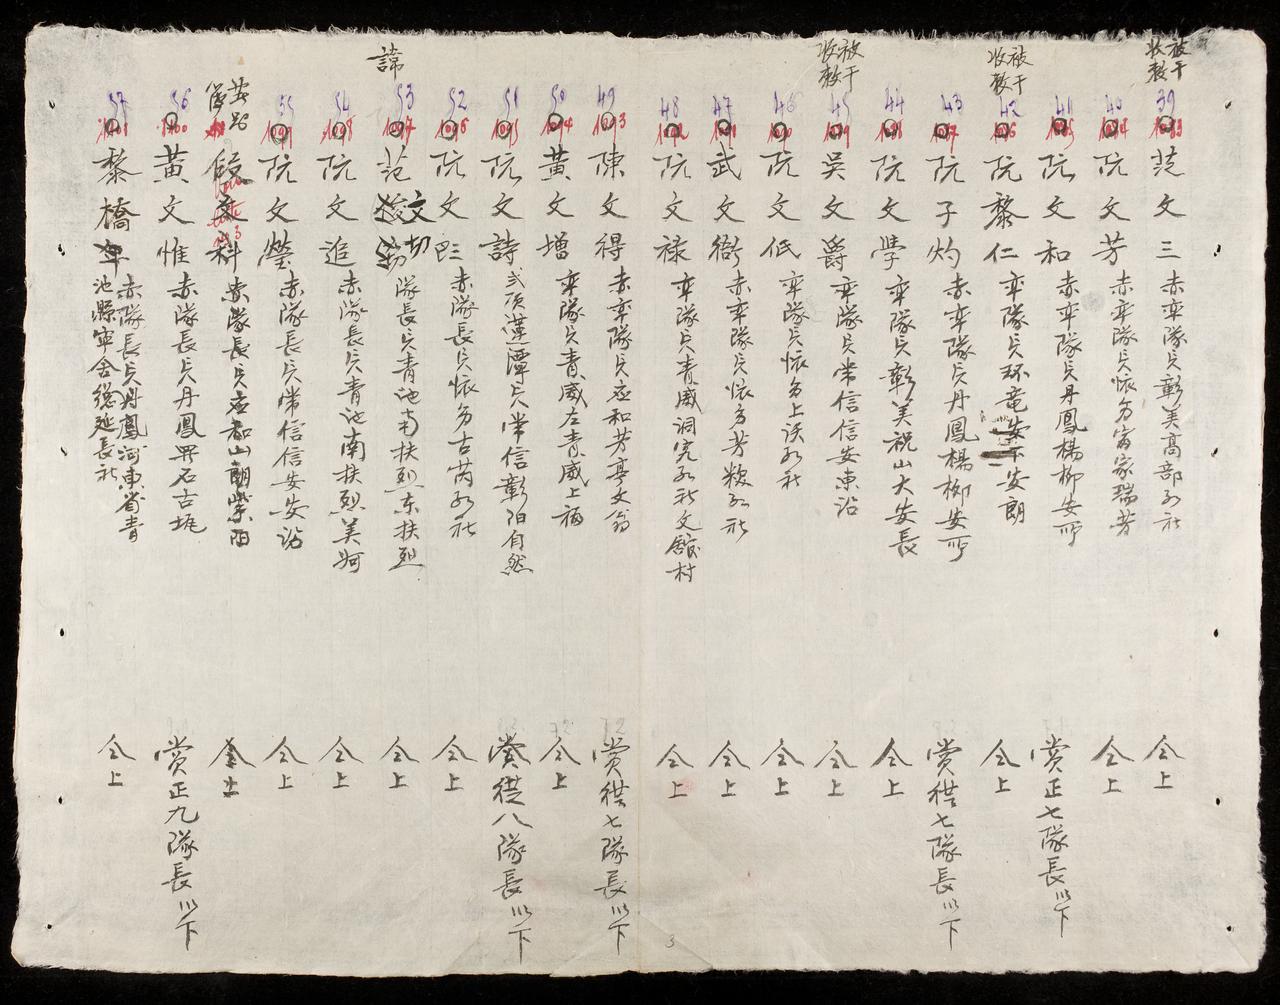 被干
收敕
39
1083
范文三 赤牢隊兵彰美高部 社
仝上
40
1084
阮文芳 赤牢隊兵懷 富家瑞芳
仝上
41
1085
阮文和 赤牢隊兵丹鳳楊柳安所
賞正七隊長以下
被干
收敕
42
1086
阮黎仁 牢隊兵环竜安下安朗
仝上
43
1087
阮子灼 赤牢隊兵丹鳳楊柳安所
賞從七隊長以下
44
1088
阮文學 牢隊兵彰美祝山大安長
仝上
被干
收敕
45
1089
吳文爵 牢隊兵常信信安東沿
仝上
46
1090
阮文低 牢隊兵懷 上 社
仝上
47
1091
武文衙 赤牢隊兵懷 芳 社
仝上
48
1092
阮文禄 牢隊兵青威洞完 社文舘村
仝上
49
1093
陳文得 赤牢隊兵應和芳亭文翁
賞從七隊長以下
50
1094
黃文增 牢隊兵青威左青威上福
仝上
51
1095
阮文詩 弍項蓮潭兵常信彰陽自然
賞從八隊長以下
52
1096
阮文 赤隊長兵懷 古芮 社
仝上
諱
53
1097
范文切 隊長兵青池南扶烈東扶烈
仝上
54
1098
阮文追 赤隊長兵青池南扶烈美妸
仝上
55
1099
阮文瑩 赤隊長兵常信信安安沿
仝上
段文科 赤隊長兵應和山朗紫陽
仝上
56
1100
黃文惟 赤隊長兵丹鳳 石古垗
賞正九隊長以下
57
1101
黎橋 赤隊長兵丹鳳河東省青
池縣寧舍總延長社
仝上
3